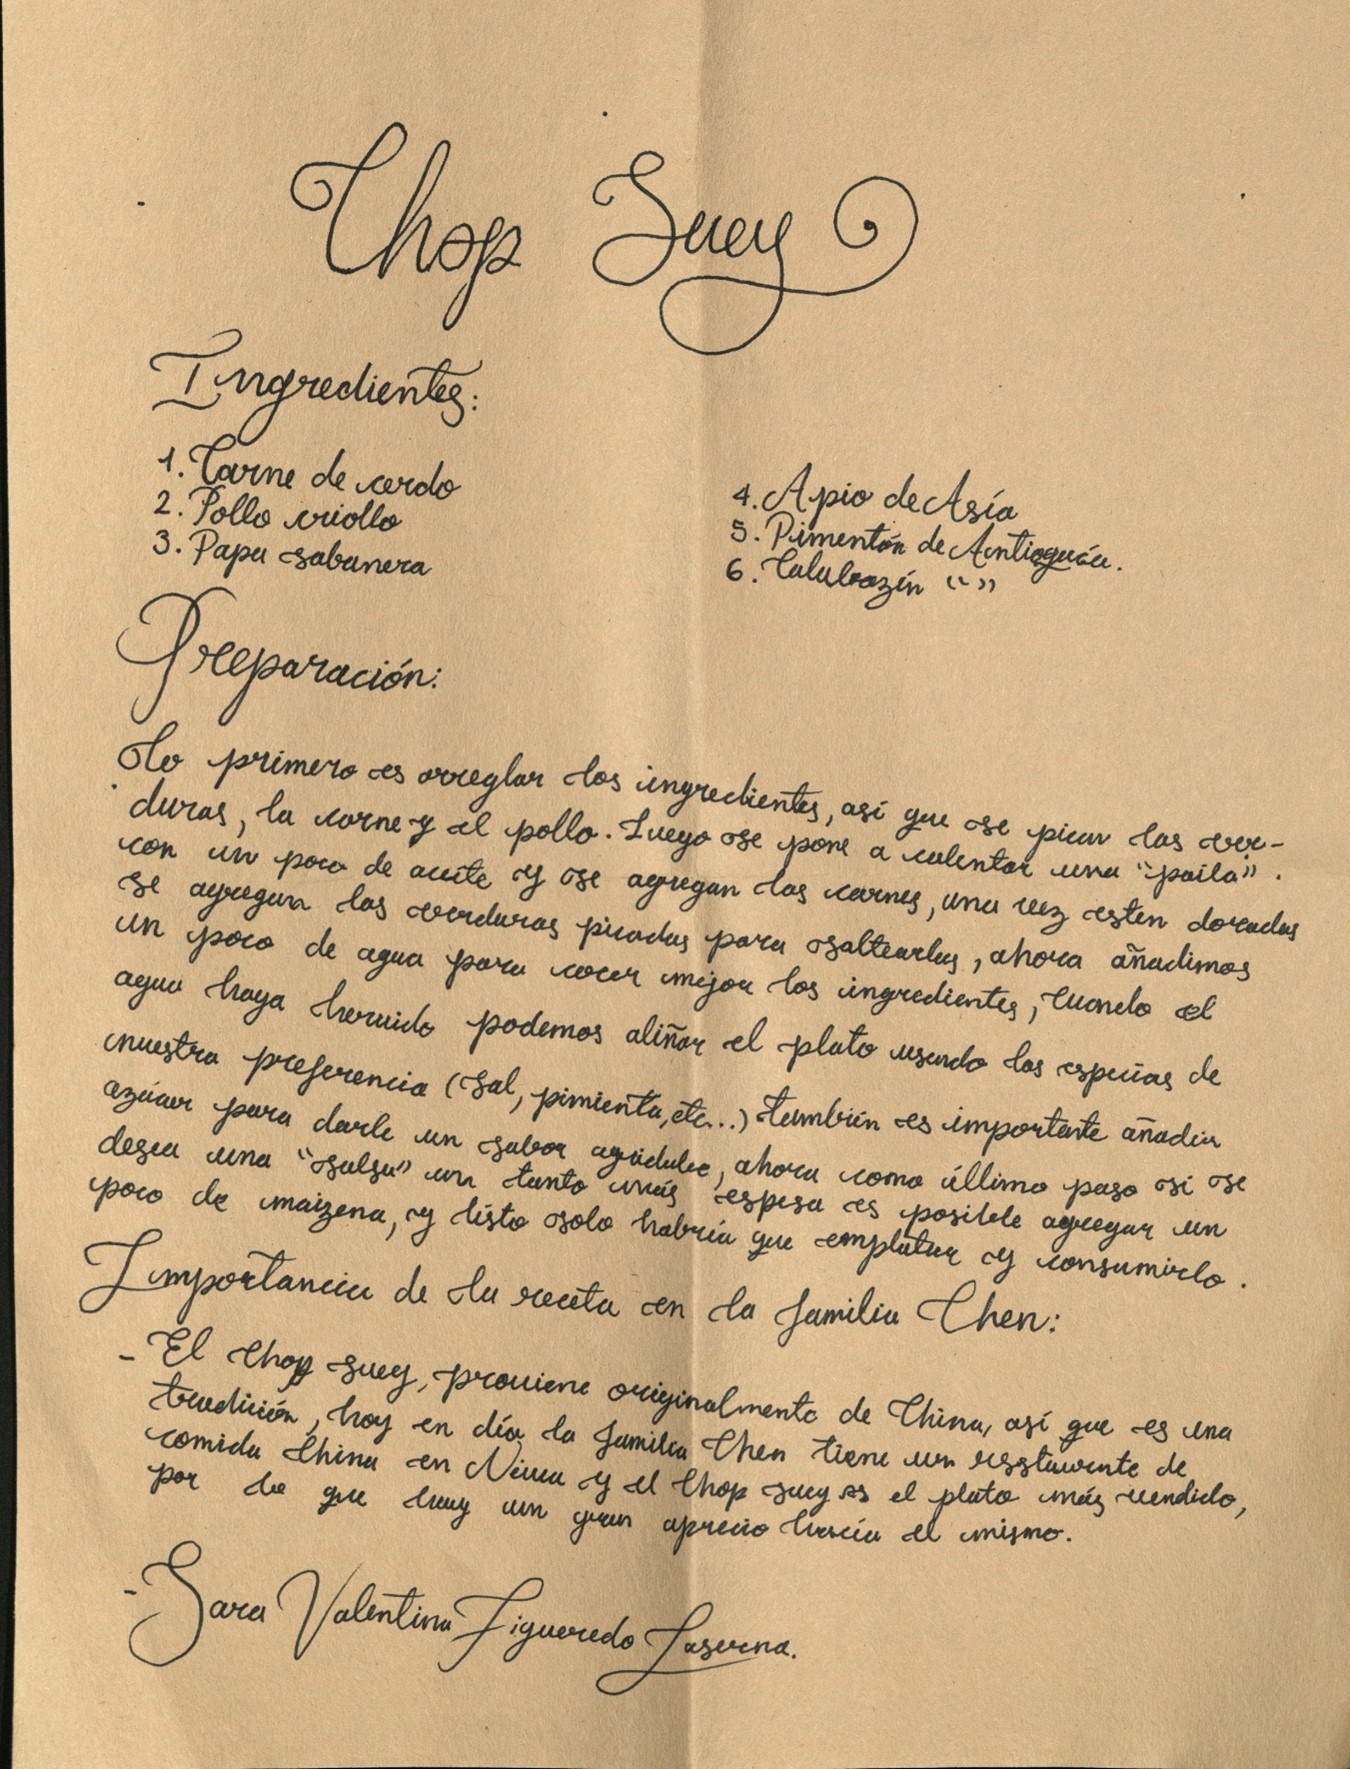 Chop Suey
Ingredientes:
1. Carne de cerdo
2. Pollo criollo
3. Papa sabanera
4. Apio de Asía
5. Pimentón de Antioquía.
6. Calabazín “ ”
Preparación:
Lo primero es arreglar los ingredientes, así que se pican las ver-
duras, la carne y el pollo. Luego se pone a calentar una “paila”.
con un poco de aceite y se agregan las carnes, una vez esten doradas
se agregan las verduras picadas para saltearlas, ahora añadimos
un poco de agua para cocer mejor los ingredientes, cuando el
agua haya hervido podemos aliñar el plato usando las especias de
nuestra preferencia (sal, pimienta, etc...) también es importante añadir
azúcar para darle un sabor agridulce, ahora como último paso si se
desea una “salsa” un tanto más espesa es posible agregar un
poco de maizena, y listo solo habría que emplatar y consumirlo.
Importancia de la receta en la familia Chen:
- El Chop Suey, proviene originalmente de China, así que es una
tradición, hoy en día la familia Chen tiene un restaurante de
comida China en Neiva y el Chop Suey es el plato más vendido,
por lo que hay un gran aprecio hacía el mismo.
- Sara Valentina Figueredo Laserna.